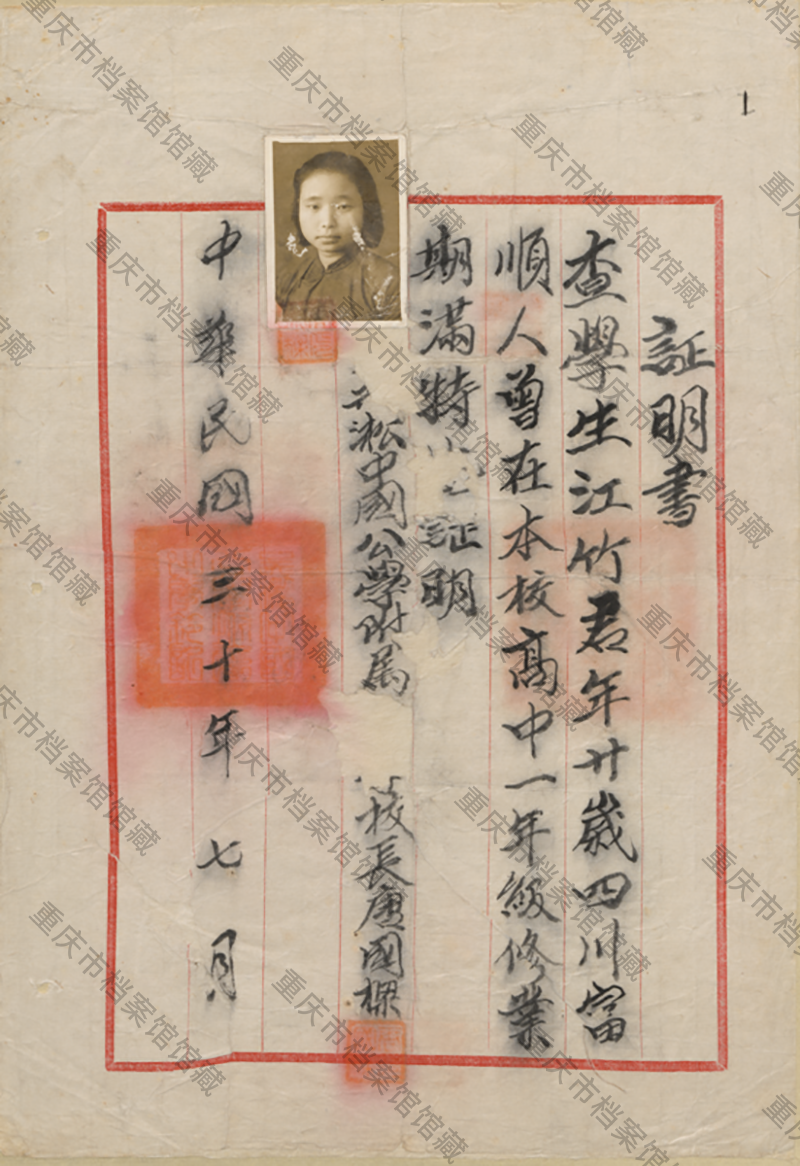 1
証明書
查學生江竹君年廿歲四川富
順人曾在本校高中一年級修業
期滿特証明
淞中國公學附属校長唐國樑
中華民國三十年七月
重庆市档案馆馆藏